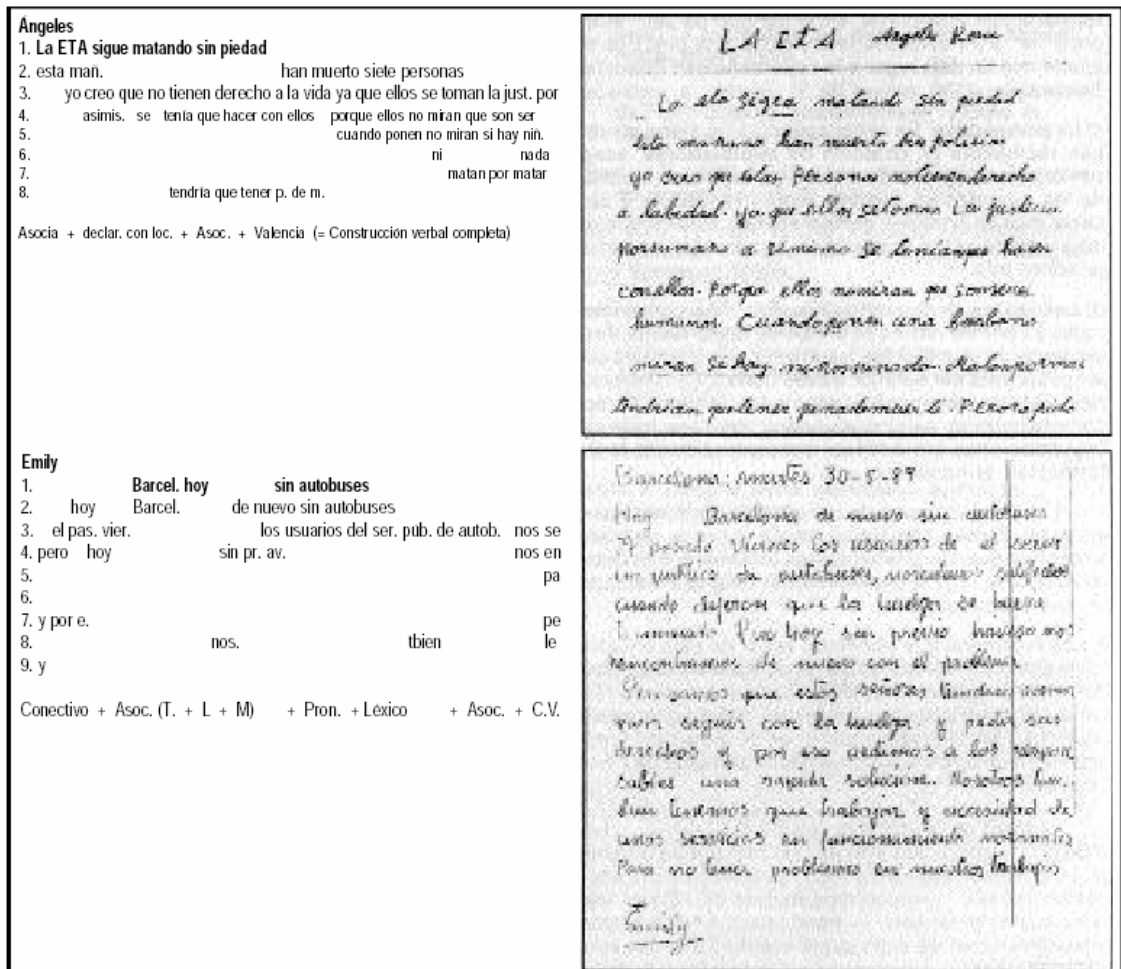 Ángeles
1. La ETA sigue matando sin piedad
2. esta mañ. han muerto siete personas
3. yo creo que no tienen derecho a la vida ya que ellos se toman la just. por
4. asimis. se tenía que hacer con ellos porque ellos no miran que son ser
5. cuando ponen no miran si hay niñ.
6. ni nada
7. matan por matar
8. tendría que tener p. de m.
Asocia + declar. con loc. + Asoc. + Valencia (= Construcción verbal completa)
LA ETA Angeles
La eta sigea matando sin piedad
esta manana han muerto
yo creo que estas Personas notienenderecho
a ya que ellos setoman La justicia
a se teniaque hacer
conellos. Porque ellos nomiran que sonseres
humanos. Cuandoponen una bomba no
miran si hay
tendrian quetener
Emily
1. Barcel. hoy sin autobuses
2. hoy Barcel. de nuevo sin autobuses
3. el pas. vier. los usuarios del ser. púb. de autob. nos se
4. pero hoy sin pr. av. nos en
5. pa
6.
7. y por e. pe
8. nos. tbien le
9. y
Conectivo + Asoc. (T. + L + M) + Pron. + Léxico + Asoc. + C.V.
Barcelona, martes 30-5-89
Hoy Barcelona de nuevo sin autobuses
pasado viernes los usuarios de el servi
público de autobuses,
cuando dijeron que la huelga de buses
hoy sin previo nos
de nuevo con el problema
que estos señores tendran
seguir con la huelga y pedir sus
derechos y por eso pedimos a los respon
sables una rapida solucion. Nosotros tam
bien tenemos que trabajar y necesidad de
unos servicios en funcionamiento
Para no tener problemas en nuestros trabajos
Emily